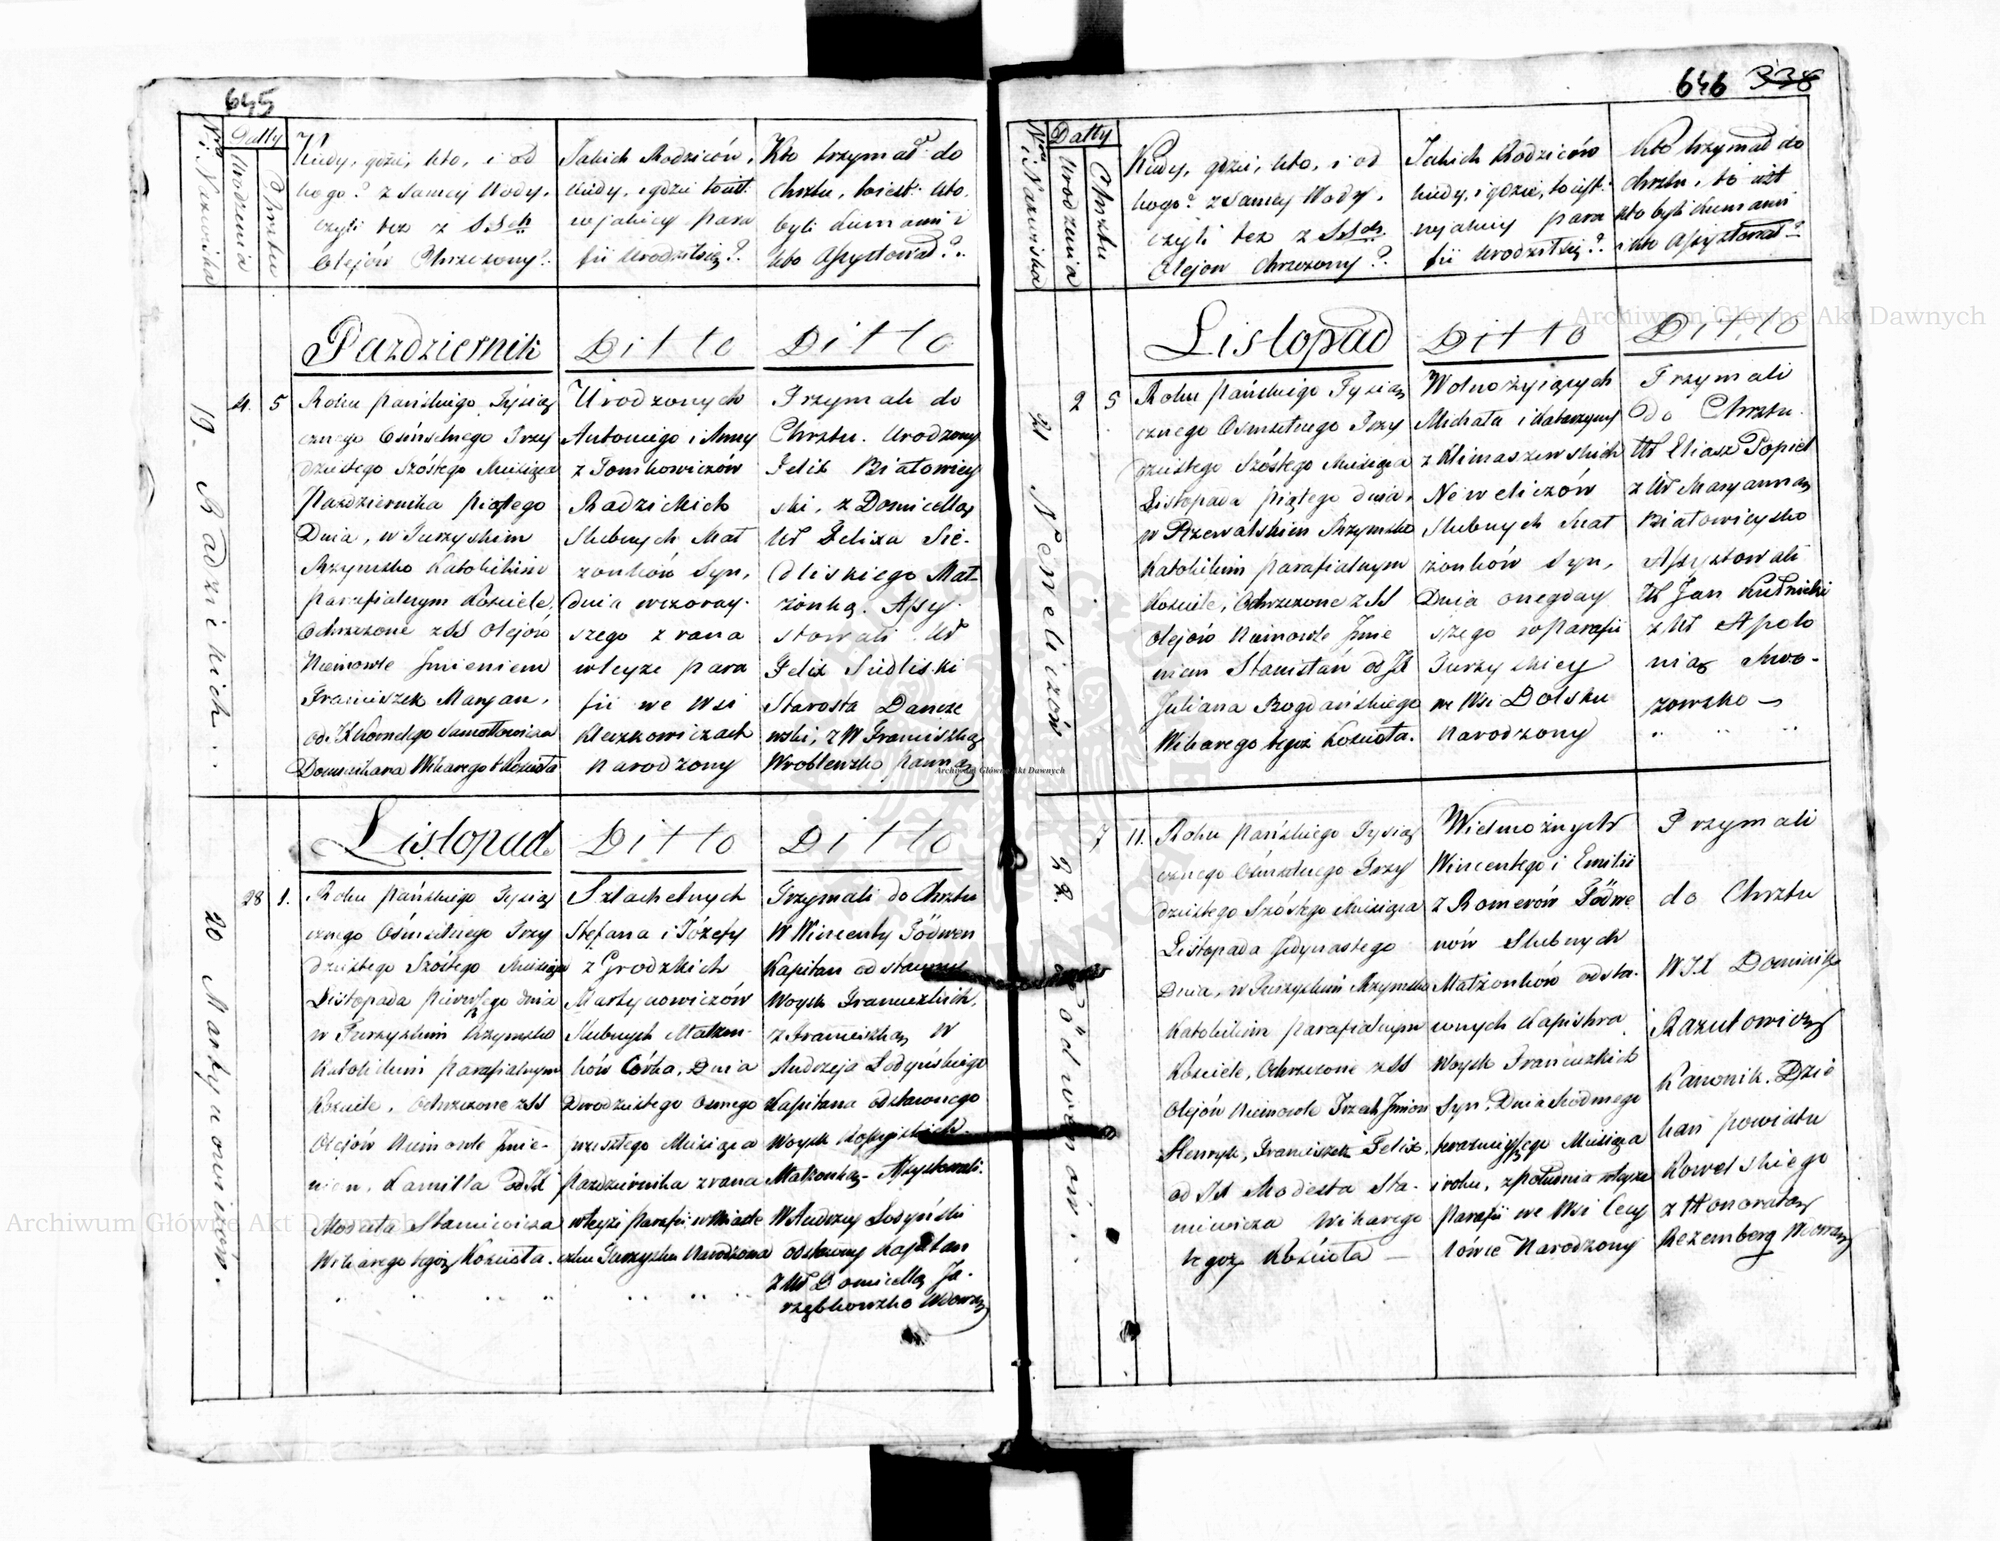 645
Nra i Nazwiska
Datty
Urodzenia
Chrztu
Kiedy, gdzie, kto, i od
kogo? z Samey Wody,
czyli też z SSch
Olejów Chrzczony?
Jakich Rodziców,
kiedy, i gdzie
w jakiey Para
fii Urodził się?
Kto trzymał do
Chrztu, to iest: kto
byli Kumami i
kto Assystował?
Pazdziernik
Ditto
Ditto
19. Radzickich
4.
5
Roku Pańskiego Tysiąc
cznego Osmsetnego Trzy
dziestego Szóstego Miesiąca
Pazdziernika piątego
Dnia, w Turzyskim
Rzymsko Katolickim
parafialnym Kościele,
Ochrzczone z SS Olejów
Niemowle Jmieniem
Franciszek Maryan,
od X Kornelego Samotłowicza
Dominikana Wikarego t. Kościoła
Urodzonych
Antoniego i Anny
z Tomkowiczów
Radzickich
Slubnych Mał
zonków Syn,
dnia wczoray-
szego z rana
w teyże para
fii we Wsi
Kluzkowiczach
Narodzony
Trzymali do
Chrztu. Urodzony
Felix Białowiey
ski, z Domicellą
Ur Felixa Sie-
dliskiego Mał
żonką. Assy-
stowali Ur
Felix Siedliski
Starosta Dancze
wski, z W Franciszką
Wroblewską Panną
Listopad
Ditto
Ditto
20 Martynowiczów.
28
1.
Roku Pańskiego Tysiąc
cznego Osmsetnego Trzy
dziestego Szóstego Miesiąca
Listopada pierwszego dnia
w Turzyskim Rzymsko
Katolickim parafialnym
Kościele, Ochrzczone z SS
Olejów Niemowle Jmie-
niem, Kamilla od X
Modesta Staniewicza
Wikarego tegoż Kościoła.
Szlachetnych
Stefana i Józefy
z Grodzkich
Martynowiczów
Slubnych Małżon-
ków Córka, Dnia
Dwodziestego osmego
zeszłego Miesiąca
Pazdziernika z rana
w teyże Parafii w Mieste
czku Turzysku Narodzona
Trzymali do Chrztu
W Wincenty Födwen
Kapitan od stawny
Woysk Francuzkich,
z Franciszką W
Andrzeja Łodyńskiego
Kapitana odstawnego
Woysk Rossyiskich
Małżonką - Assystowali:
W Andrzey Łodyński
odstawny Kapitan
z Ur Domicellą Ja-
rzębkowską Wdową
646 338
Nra i Nazwiska
Datty
Urodzenia
Chrztu
Kiedy, gdzie, kto, i od
kogo? z Samey Wody,
czyli też z SSch
Olejów Chrzczony?
Jakich Rodziców
kiedy, i gdzie, to iest:
w jakiey para
fii Urodził się?
Kto trzymał do
Chrztu, to iest
kto byli Kumami
i kto Assystował?
Listopad
Ditto
Ditto
21 Neweliczów
2
5
Roku Pańskiego Tysiąc
cznego Osmsetnego Trzy
dziestego Szóstego Miesiąca
Listopada piątego dnia,
w Przewalskim Rzymsko
Katolickim parafialnym
Kościele, Ochrzczone z SS
Olejów Niemowle Jmie
niem Stanisław od X
Juliana Bogdańskiego
Wikarego tegoż Kościoła.
Wolno żyiących
Michała i Katarzyny
z Klimaszewskich
Neweliczów
Slubnych Mał
żonków Syn,
Dnia onegday
szego w Parafii
Turzyskiey
we Wsi Dolsku
Narodzony
Trzymali
Do Chrztu
Ur Eliasz Popiel
z Ur Maryanną
Białowieysko
Assystowali
Ur Jan Kutnicki
z Ur Apolo
nią Suro-
zowsko
22. Födwenów
7
11.
Roku Pańskiego Tysiąc
cznego Osmsetnego Trzy
dziestego Szóstego Miesiąca
Listopada Jedynastego
Dnia, w Turzyskim Rzymsko
Katolickim parafialnym
Kościele, Ochrzczone z SS
Olejów Niemowle Trzech Jmion
Henryk, Franciszek Felix,
od X Modesta Sta-
niewicza Wikarego
tegoż Kościoła
Wielmożnych
Wincentego i Emilii
z Romerów Födwe
nów Slubnych
Małżonków odsta-
wnych Kapitana
Woysk Francuzkich
Syn. Dnia Siodmego
terazniejszego Miesiąca
i roku, z południa w teyże
Parafii we Wsi Cey
łówce Narodzony
Trzymali
do Chrztu
WJX Dominik
Razutowicz
Kanonik. Dzie
kan powiatu
Kowelskiego
z Honoratą
Rezemberg Wdową
Archiwum Główne Akt Dawnych
Archiwum Główne Akt Dawnych
Archiwum Główne Akt Dawnych